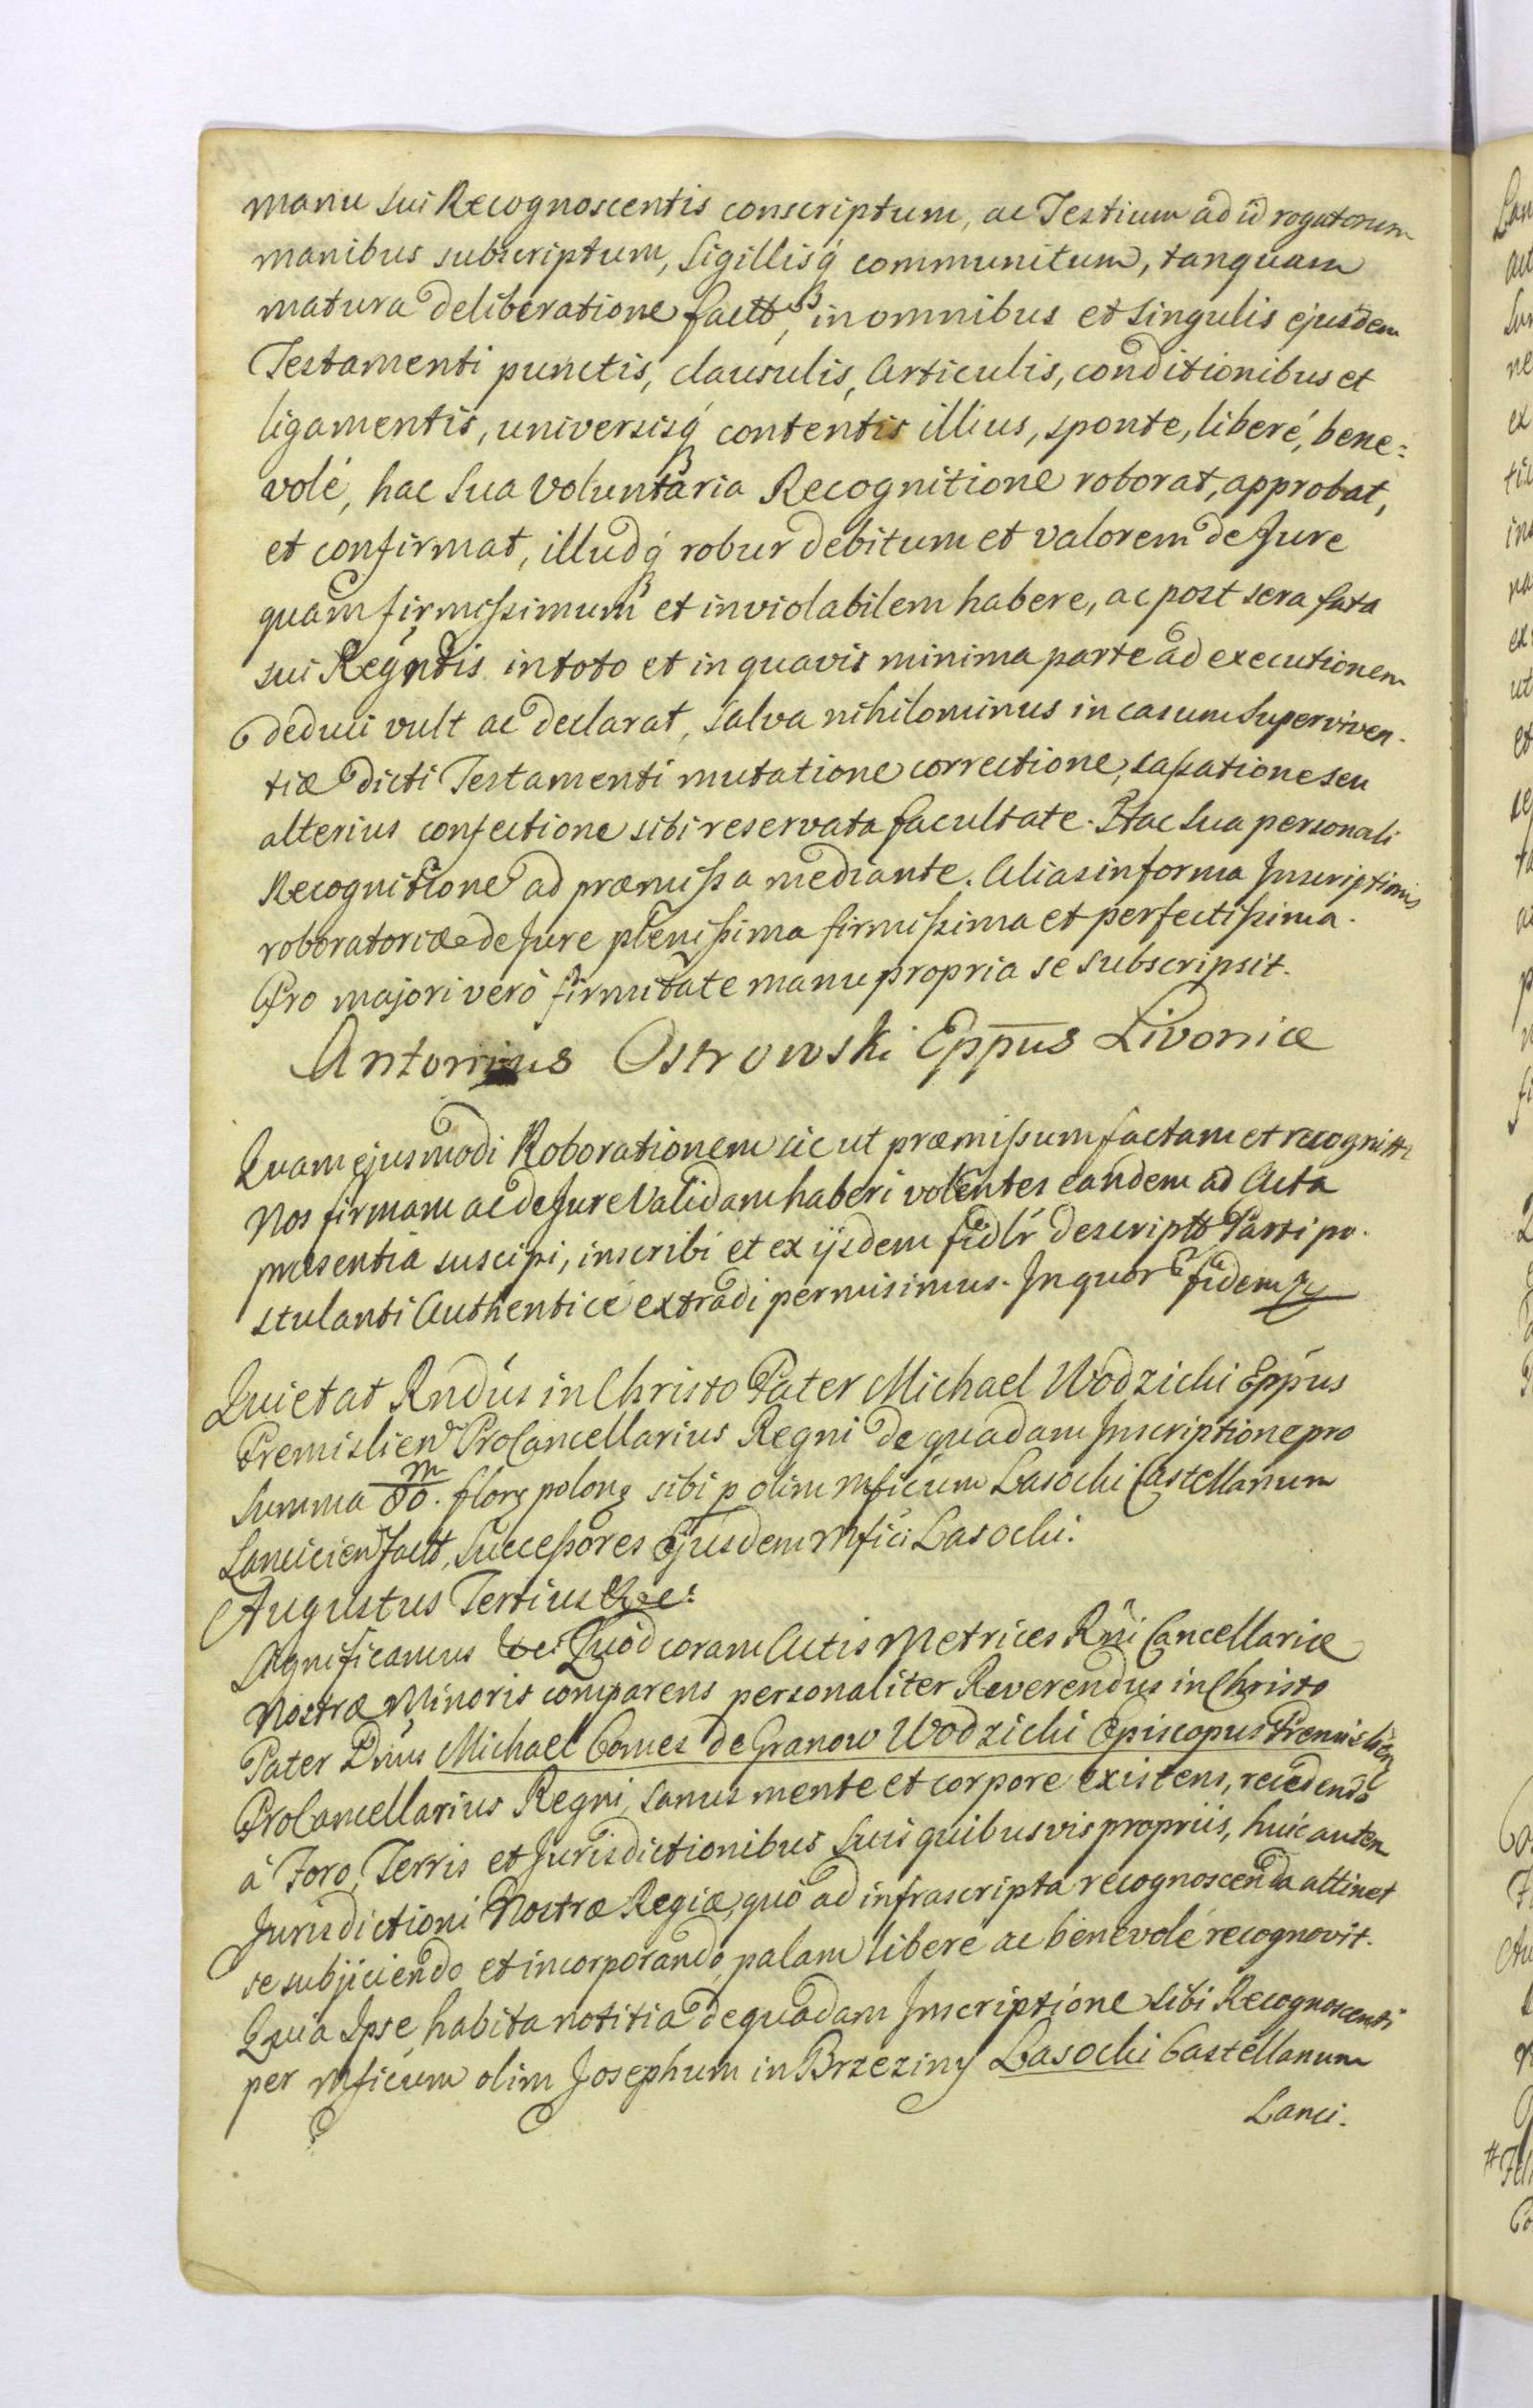 manu sui Recognoscentis conscriptum, ac Testium ad id rogatorum
manibus subscriptum, Sigillisq́ communitum, tanquam
matura deliberatione factt, in omnibus et singulis ejusdem
Testamenti punctis, clausulis, Articulis, conditionibus et
ligamentis, universisq́ contentis illius, sponte, liberé, bene:
volé, hac sua voluntaria Recognitione roborat, approbat,
et confirmat, illudq́ robur debitum et valorem de Jure
quam firmissimum et inviolabilem habere, ac post sera fata
sui Regntis in toto et in quavis minima parte ad executionem
deduci vult ac declarat, salva nihilominus in casum superviven-
tiæ dicti Testamenti mutatione correctione, cassatione seu
alterius confectione sibi reservata facultate. Hac sua personali
Recognitione ad præmissa mediante. Alias in forma Inscriptionis
roboratoriæ de Jure plenissima firmissima et perfectissima.
Pro majori verò firmitate manu propria se subscripsit.
Antonius Ostrowski Eppus Livoniæ
Quam ejusmodi Roborationem sic ut præmissum factam et recognitt
Nos firmam ac de Jure Validam haberi volentes eandem ad Acta
præsentia suscipi, inscribi et ex ijsdem fidlr descriptt Parti po-
stulanti Authenticé extradi permisimus. In quor fidem
Quietat Rndus in Christo Pater Michael Wodzicki Eppus
Premislien ProCancellarius Regni de quadam Inscriptione pro
Summa 80 m. flor polon sibi p olim Mficum Lasocki Castellanum
Lancicien factt, Successores Ejusdem Mfici Lasocki.
Augustus Tertius &c:
Significamus &c: Quod coram Actis Metrices Rni Cancellariæ
Nostræ Minoris comparens personaliter Reverendus in Christo
Pater Dnus Michael Comes de Granow Wodzicki Episcopus Premislien
ProCancellarius Regni, sanus mente et corpore existens, recedendo
à Foro, Terris et Jurisdictionibus suis quibusvis propriis, huic autem
Jurisdictioni Nostræ Regiæ, quó ad infrascripta recognoscenda attinet
se subjiciendo et incorporando, palam liberé ac benevolé recognovit.
Quia Ipse, habita notitia de quadam Inscriptione sibi Recognoscenti
per Mficum olim Josephum in Brzeziny Lasocki Castellanum
Lanci-